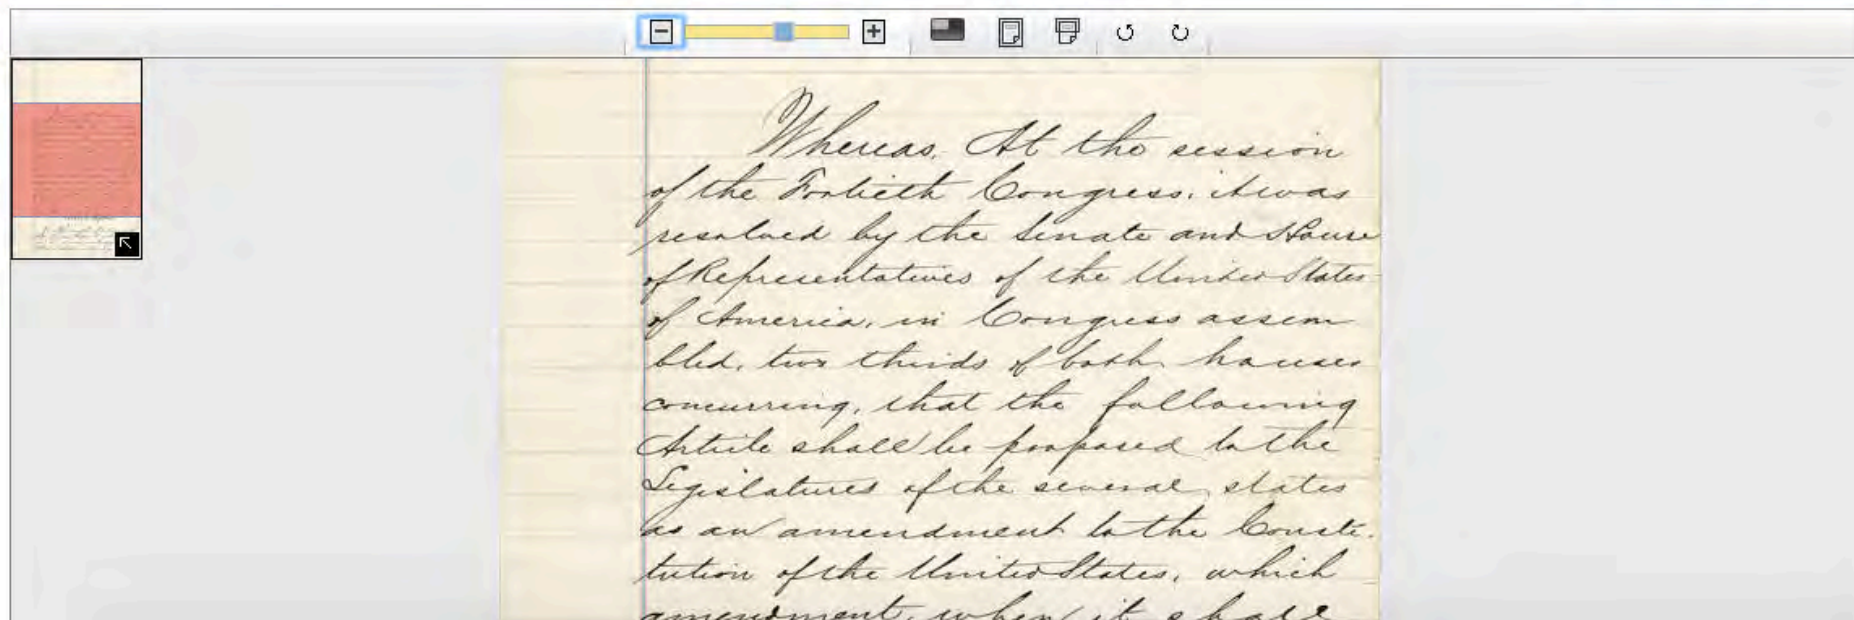 Whereas. At the session
of the Fortieth Congress, it was
resolved by the Senate and House
of Representatives of the United States
of America, in Congress assem
bled, two thirds of both houses
concurring, that the following
Article shall be proposed to the
Legislatures of the several states
as an amendment to the Consti-
tution of the United States, which
amendment, when it shall